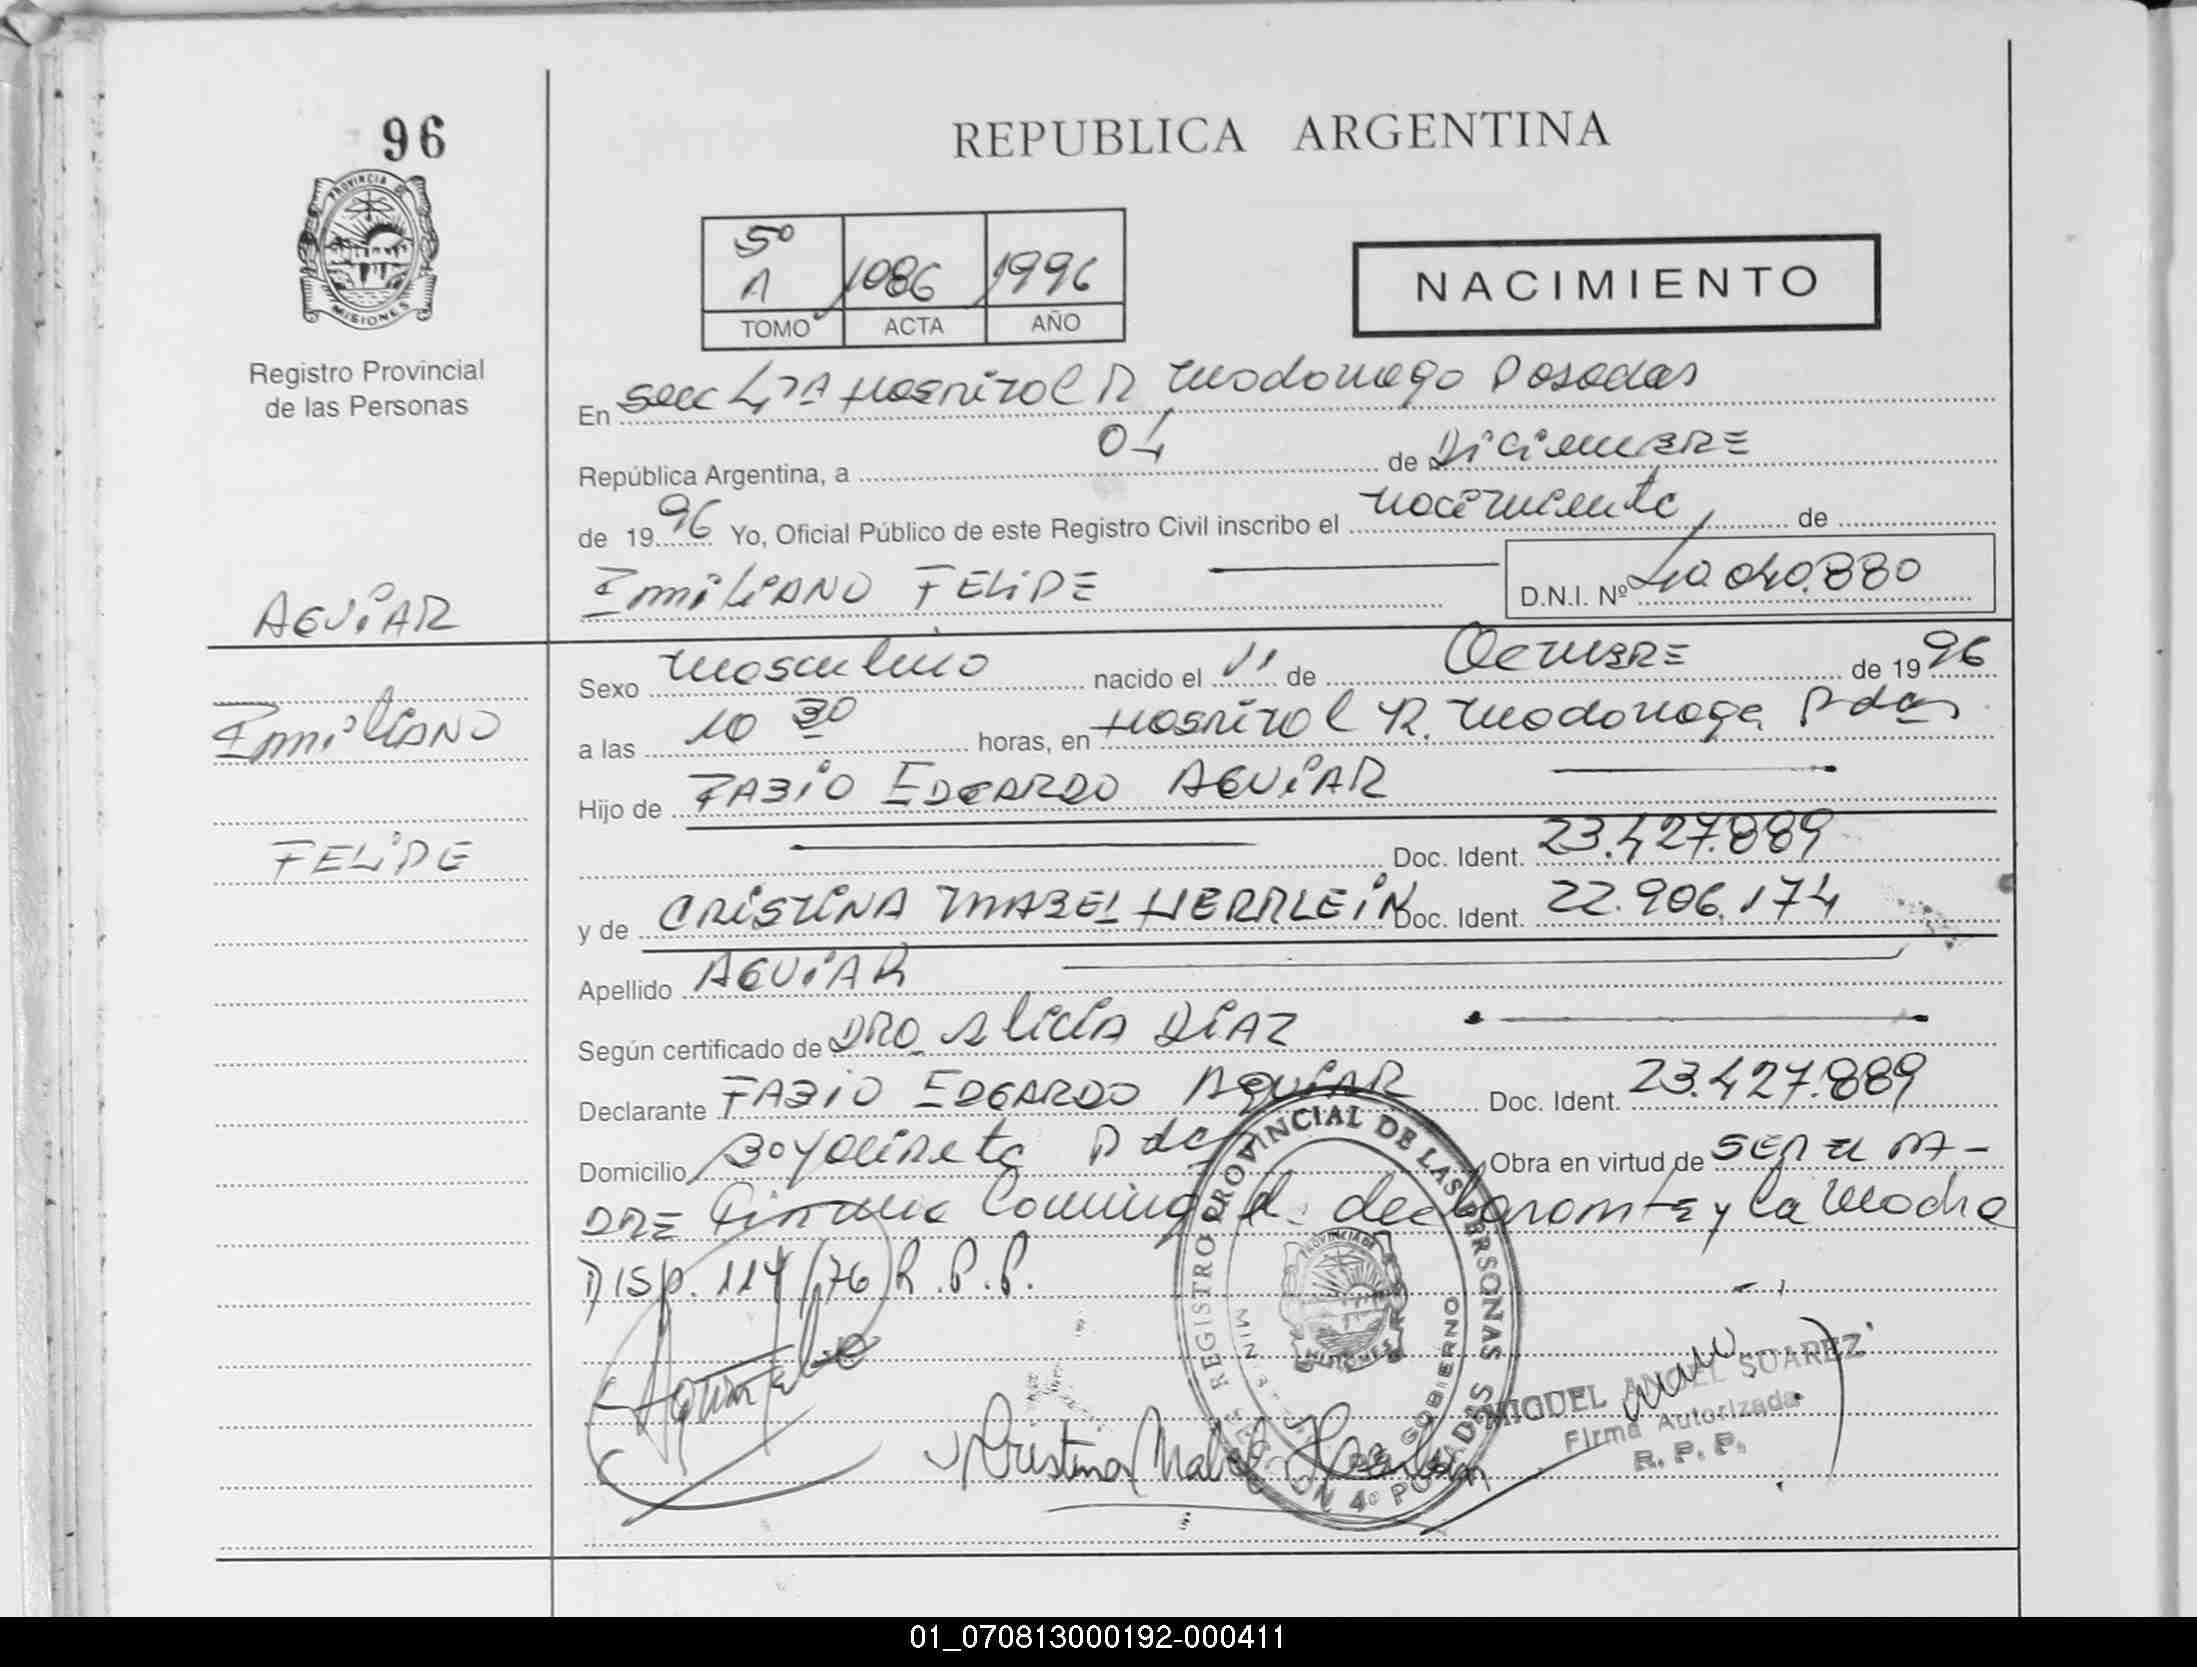 96
REPUBLICA ARGENTINA
PROVINCIA DE
MISIONES
Registro Provincial
de las Personas
5º
A 1086 1996
TOMO ACTA AÑO
NACIMIENTO
En Secc 4ta Hospital R Madariaga Posadas
República Argentina, a 04 de Diciembre
de 1996 Yo, Oficial Público de este Registro Civil inscribo el nacimiento, de
EmiLiANO FELiPE D.N.I. Nº 40.040.880
AGUiAR
EmiliANO
FELiPE
Sexo masculino nacido el 11 de OCTUBRE de 1996
a las 10 30 horas, en Hospital R. Madariaga Pdas
Hijo de FABiO EDGARDO AGUiAR
Doc. Ident. 23.427.889
y de CRiSTiNA MABEL HERRLEiN Doc. Ident. 22.906.174
Apellido AGUiAR
Según certificado de DRA AliCiA DiAZ
Declarante FABiO EDGARDO AGUiAR Doc. Ident. 23.427.889
Domicilio Pdas Obra en virtud de SER EL PA-
DRE Firma Conmigo el declarante y la Madre
DISP. 114/76 R.P.P.
REGISTRO PROVINCIAL DE LAS PERSONAS
GOBIERNO
4º POSADAS
Cristina Mabel Herrlein
MIGUEL ANGEL SUAREZ
Firma Autorizada
R. P. P.
01_070813000192-000411